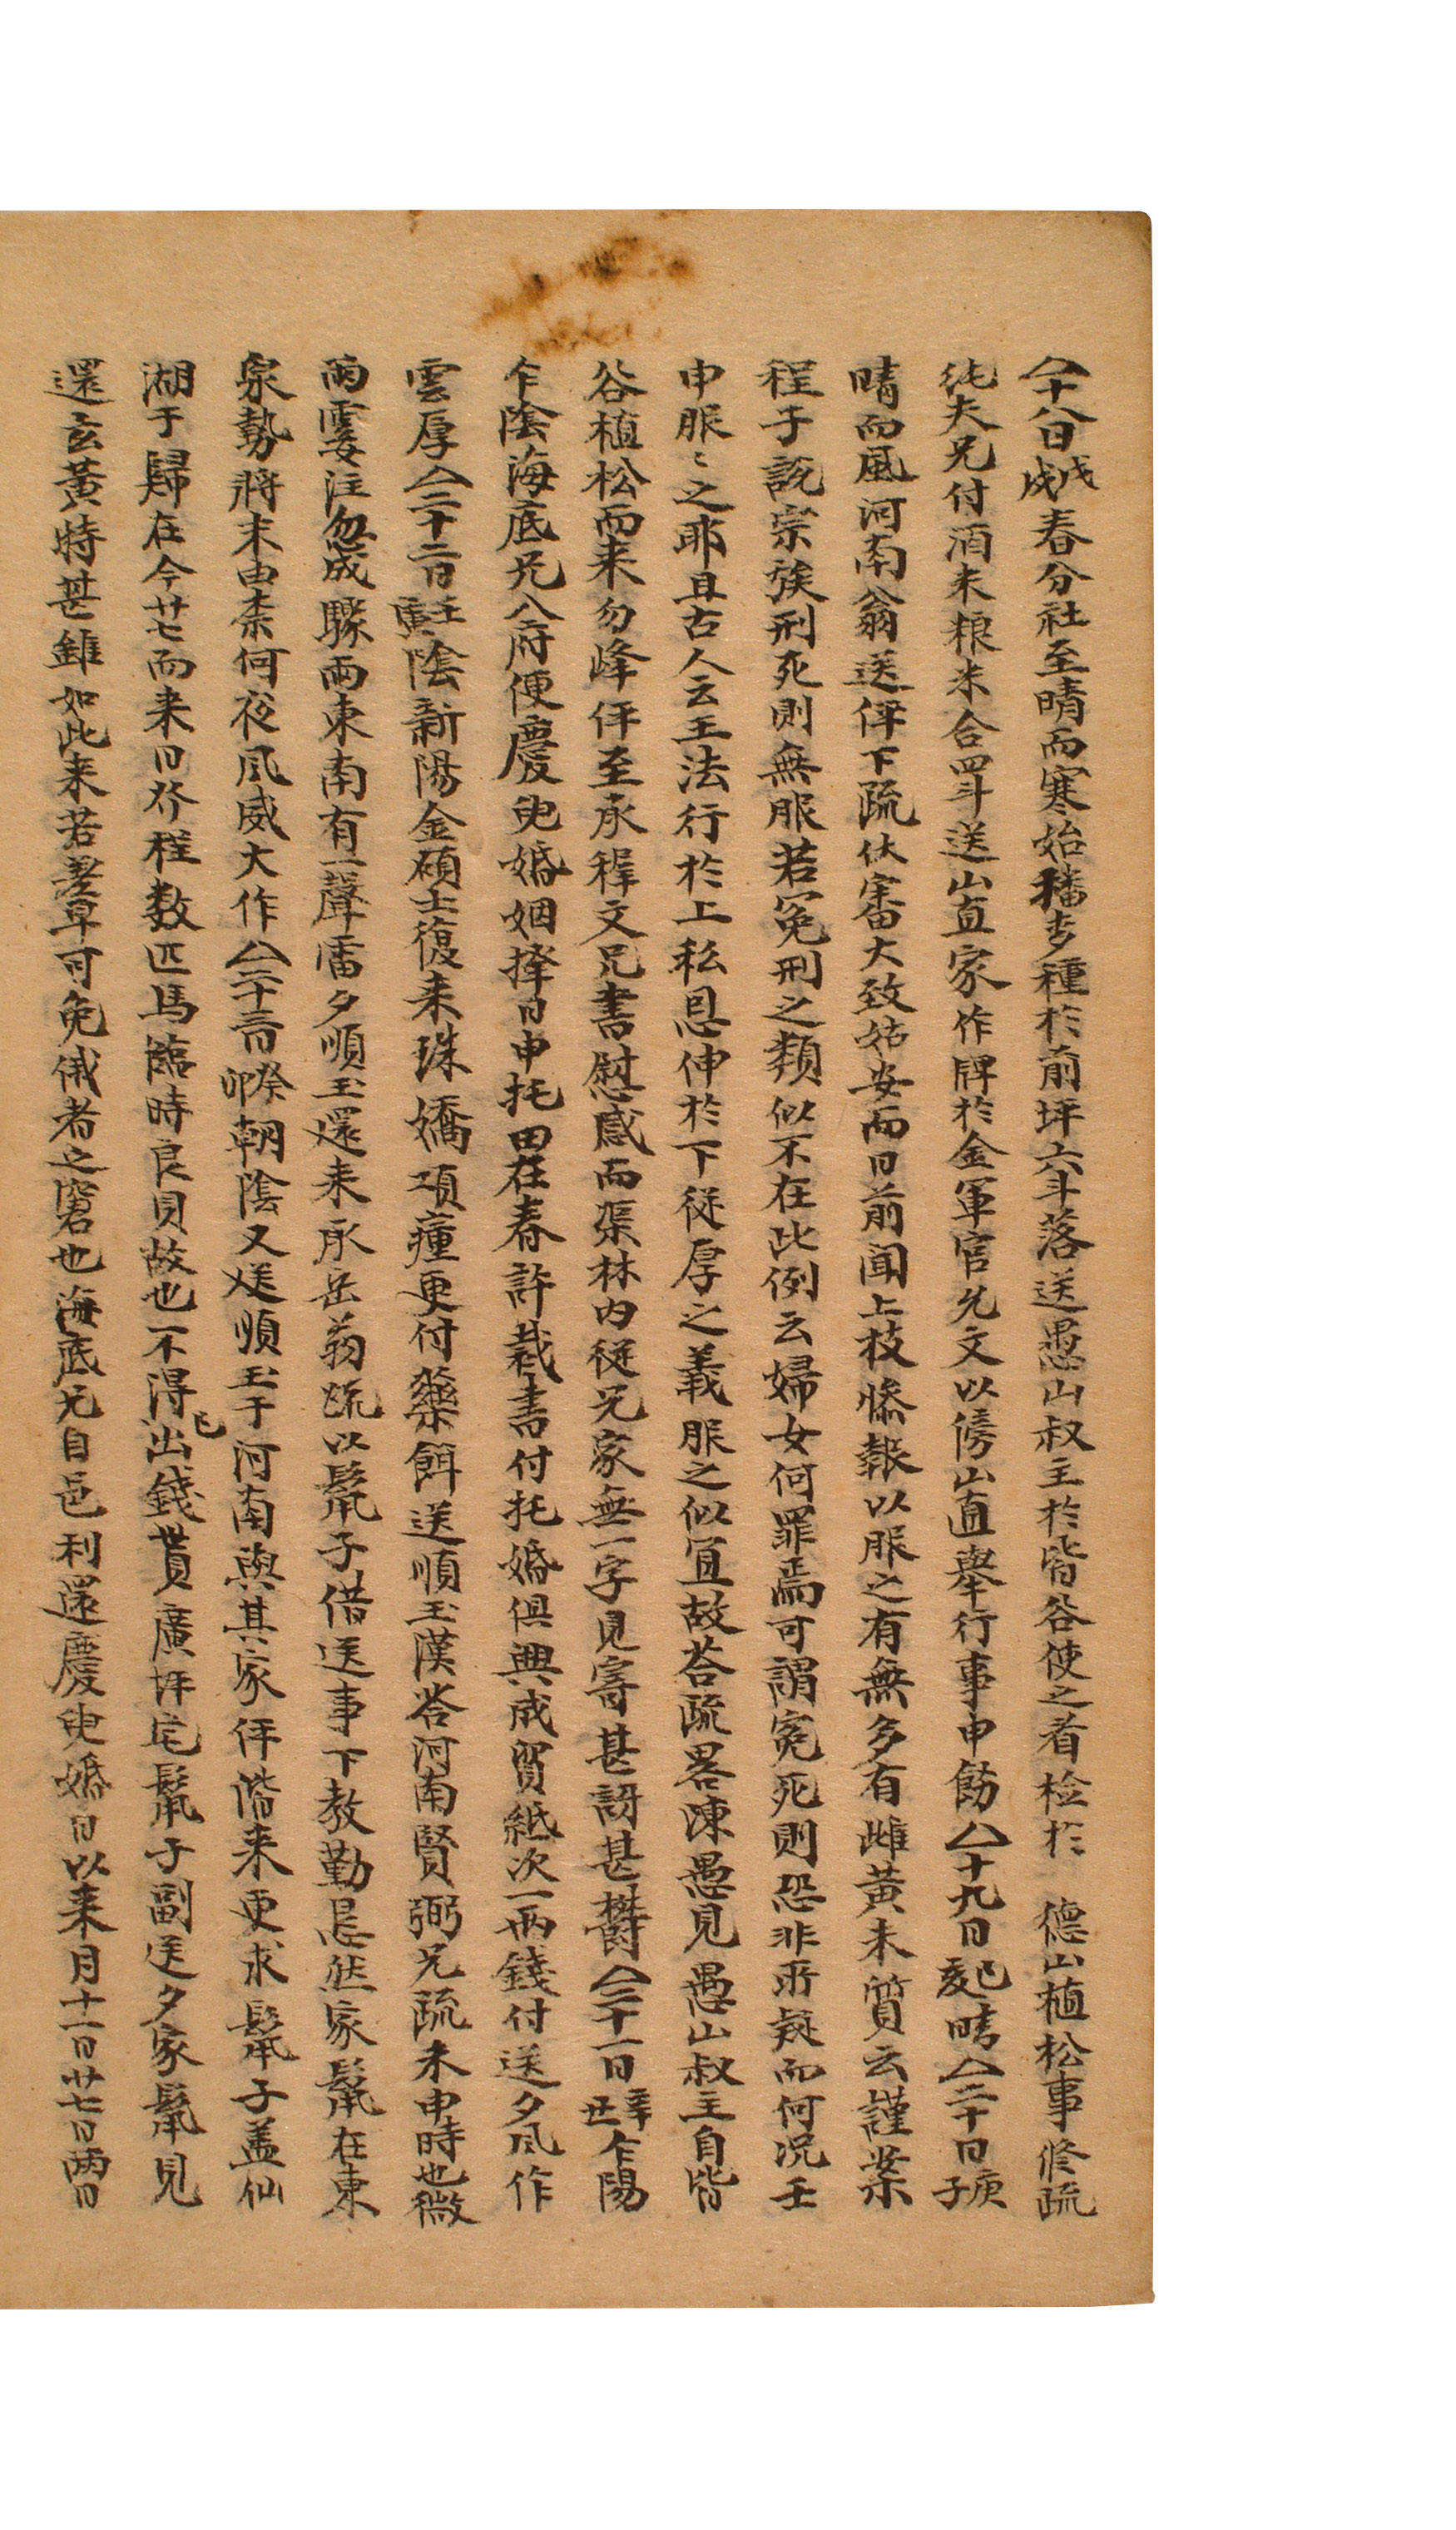 △十八日戊戌春分社至晴而寒始播麥種於前坪六斗落送愚山叔主於皆谷使之看检於 德山植松事修疏
純夫兄付酒末粮米合四斗送山直家作牌於金軍官允文以傍山直舉行事申飭△十九日己亥晴△二十日庚子
晴而風河南翁送伻下疏伏審大致姑安而日前聞上枝慘報以服之有無多有雌黃未質云謹案
程子說宗族刑死則無服若冤刑之類似不在此例云婦女何罪焉可謂冤死則恐非所疑而何况壬
申服〻之耶且古人云王法行於上私恩伸於下從厚之義服之似宜故荅疏畧陳愚見愚山叔主自皆
谷植松而来勿峰伻至承稺文兄書慰感而渠林内從兄家無一字見寄甚訝甚欝△二十一日辛丑乍陽
乍陰海底兄八府便慶臾婚姻擇日申托田在春許裁書付托婚俱興成貿紙次一兩錢付送夕風作
雲厚△二十二日壬寅陰新陽金碩士復来珠嬌項瘇更付藥餌送順玉漢荅河南賢弼兄疏未申時也微
雨霎注忽成驟雨東南有一聲雷夕順玉還来承岳翁疏以髴子借送事下教勤恳然家髴在東
泉勢將末由柰何夜風威大作△二十三日癸卯朝陰又送順玉于河南與其家伻偕来更求髴子盖仙
湖于歸在今廿七而来日發程数匹馬臨時良貝故也不得已出錢貰廣坪宅髴子副送夕家髴見
還玄黃時甚雖如此来若差早可免俄者之窘也海底兄自邑利還慶臾婚日以来月十一日廿七日兩日